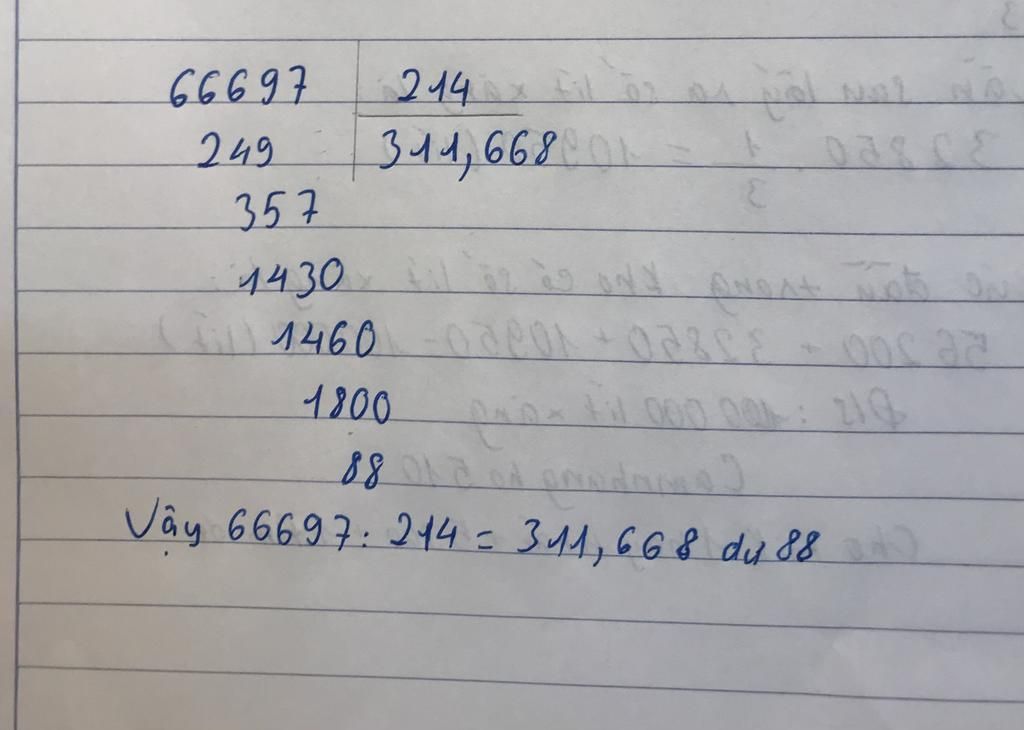 66697 214
249 311,668
357
1430
1460
1800
88
Vậy 66697: 214 = 311,668 dư 88